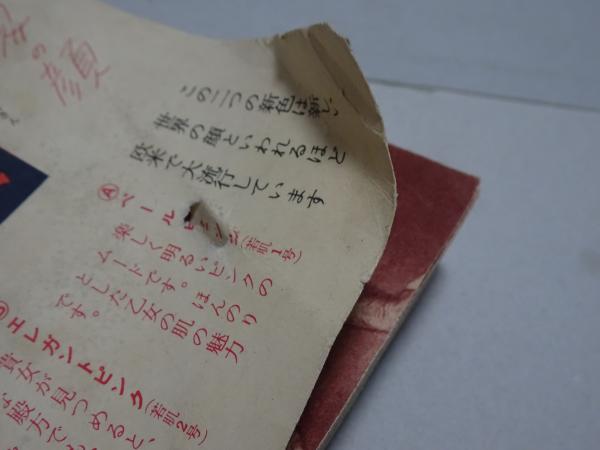 の顔
この二つの新色は新しい
世界の顔といわれるほど
欧米で大流行しています
Ⓐペールピンク(若肌1号)
楽しく明るいピンクの
ムードです。ほんのり
とした乙女の肌の魅力
です。
Ⓑエレガントピンク(若肌2号)
貴女が見つめると、
殿方で